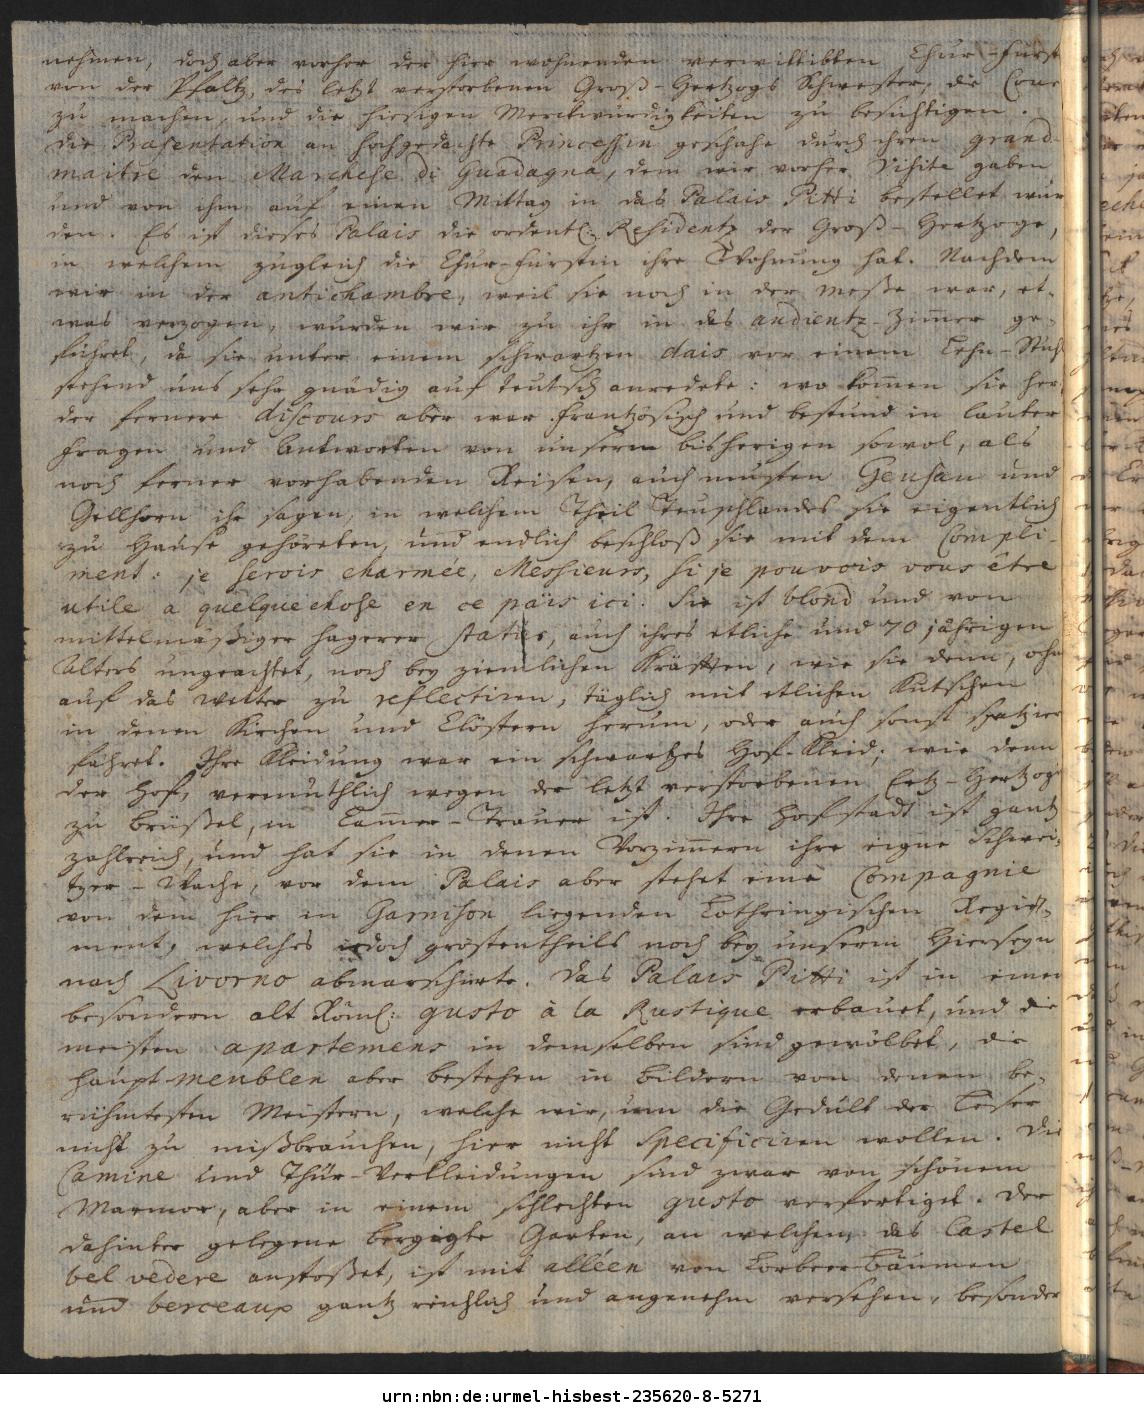 nehmen, doch aber vorher der hier wohnenden verwittibten Chur-fürst
von der Pfaltz, des letzt verstorbenen Groß-Hertzogs Schwester, die Cour
zu machen, und die hiesigen Merckwürdigkeiten zu besichtigen.
die Præsentation an hochgedachte Princessin geschahe durch ihren grand-
maitre den Marchese di Guadagna, dem wir vorher Visite gaben
und von ihm auf einen Mittag in das Palais Pitti bestellet wur
den. Es ist dieses Palais die ordentl: Residentz der Groß-Hertzoge,
in welchem zugleich die Chur-fürstin ihre Wohnung hat. Nachdem
wir in der antichambre, weil sie noch in der Meße war, et-
was verzogen, wurden wir zu ihr in das audientz-Zimer ge-
führet, da sie unter einem schwartzen dais vor einem Lehn-Stuhl
stehend uns sehr gnädig auf teutsch anredete: wo komen sie her,
der fernere discours aber war frantzösisch und bestund in lauter
fragen und Antworten von unsern bisherigen sowol, als
noch ferner vorhabenden Reisen, auch musten Geusau und
Gellhorn ihr sagen, in welchem Theil Teuschlandes sie eigentlich
zu Hause gehöreten, und endlich beschloß sie mit dem Compli-
ment: je serois charmée, Messieurs, si je pouvois vous être
utile a quelque chose en ce païs ici. Sie ist blond und von
mittelmäßiger hagerer statur, auch ihres etliche und 70 jährigen
Alters ungeachtet, noch bey ziemlichen Kräfften, wie sie denn, ohn
auf das Wetter zu reflectiren, täglich mit etlichen Kutschen
in denen Kirchen und Clöstern herum, oder auch sonst spatzier
fähret. Ihre Kleidung war ein schwartzes Hof-Kleid; wie denn
der Hof, vermuthlich wegen der letzt verstorbenen Ertz-Hertzogin
zu Brüßel, in Camer-Trauer ist. Ihre Hofstadt ist gantz
zahlreich, und hat sie in denen Vorzimern ihre eigne Schwei-
tzer-Wache, vor dem Palais aber stehet eine Compagnie
von dem hier in Garnison liegenden Lothringischen Regi-
ment, welches jedoch gröstentheils noch bey unserm Hierseyn
nach Livorno abmarschirte. Das Palais Pitti ist in einem
besondern alt Röml: gusto à la Rustique erbauet, und die
meisten apartemens in demselben sind gewölbet, die
haupt-meublen aber bestehen in Bildern von denen be-
rühmtesten Meistern, welche wir, um die Gedult der Leser
nicht zu mißbrauchen, hier nicht specificiren wollen. Die
Camine und Thür-Verkleidungen sind zwar von schönem
Marmor, aber in einem schlechten gusto verfertiget. Der
dahinter gelegene bergigte Garten, an welchen das Castel
bel vedere anstoßet, ist mit alléen von Lorbeer-Bäumen
und berceaux gantz reichlich und angenehm versehen, besonder
urn:nbn:de:urmel-hisbest-235620-8-5271